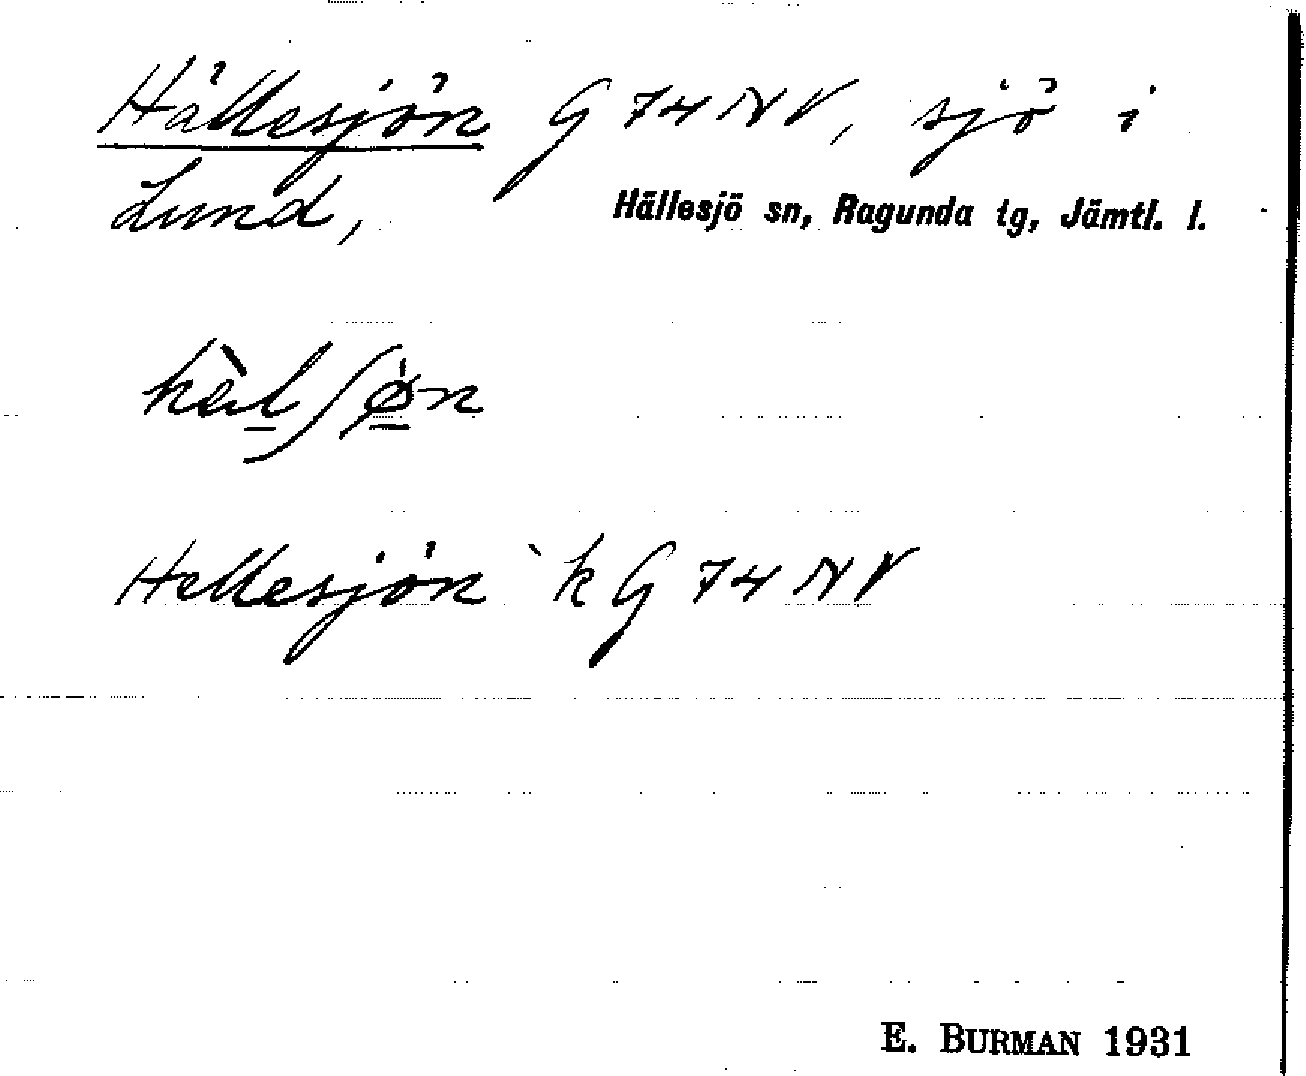 Hällesjön G 74 NV, sjö i
Lund, Hällesjö sn, Ragunda tg, Jämtl. l.
hèlʃøn
Hellesjön `k G 74 NV
E. BURMAN 1931